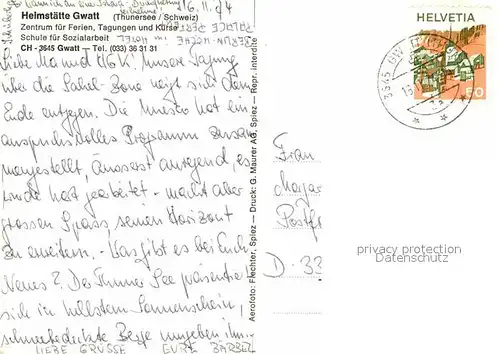 16.11.84
Helmstätte Gwatt (Thunersee / Schweiz)
Zentrum für Ferien, Tagungen und Kurse
Schule für Sozialarbeit
CH - 3645 Gwatt — Tel. (033) 36 31 31
Liebe Unsere Tagung
über die Sahel-Zone neigt sich dem
Ende entgegen. Die Unesco hat ein
anspruchsvolles Programm zusam
mengestellt, äusserst anregend, es
wurde hart gearbeitet - macht aber
grossen Spass seinen Horizont
zu erweitern. - Was gibt es bei Euch
Neues? Der Thuner See präsentiert
sich in hellstem Sonnenschein,
schneebedeckte Berge umgeben ihn.
LIEBE GRÜSSE EURE BÄRBEL
Aerofoto: Flechter, Spiez — Druck: G. Maurer AG, Spiez — Repr. interdite
HELVETIA
60
3645 GWATT (THUN)
Frau
Margar
Postf
D. 33
privacy protection
Datenschutz